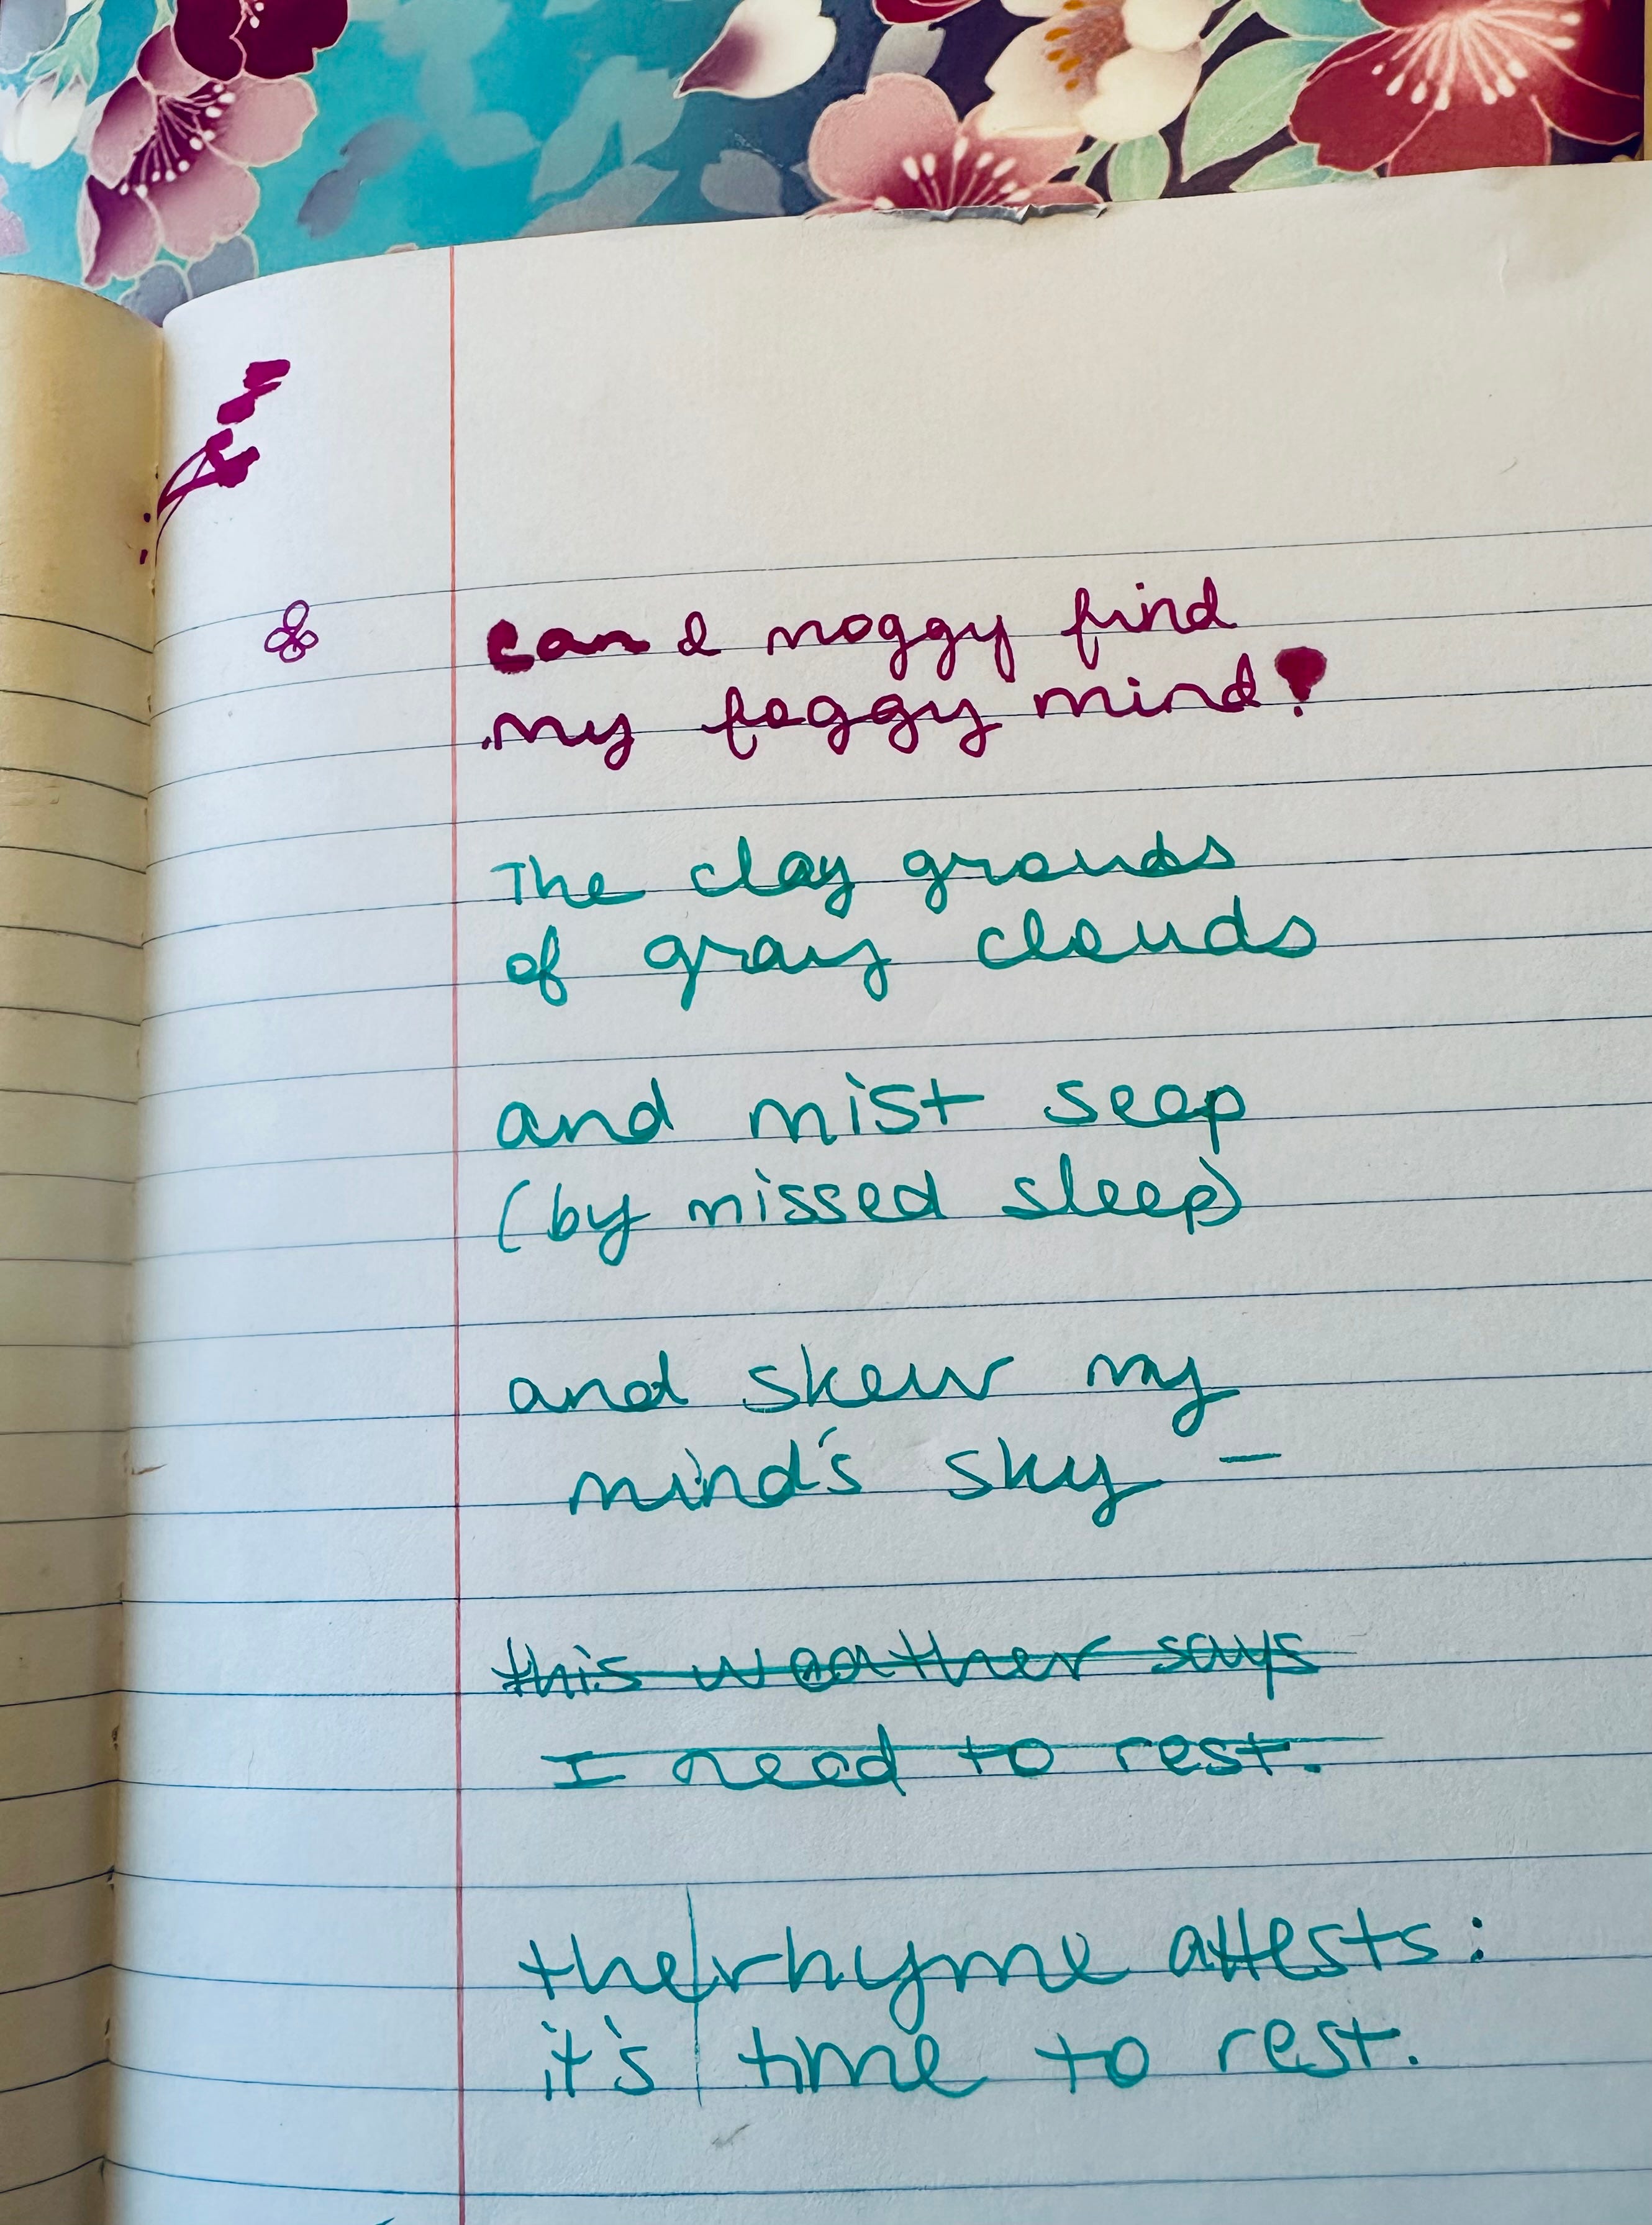 Can I noggy find
my foggy mind?
The clay grouds
of gray clouds
and mist seep
(by missed sleep)
and skew my
mind's sky –
this weather says
I need to rest.
the rhyme attests:
it's time to rest.